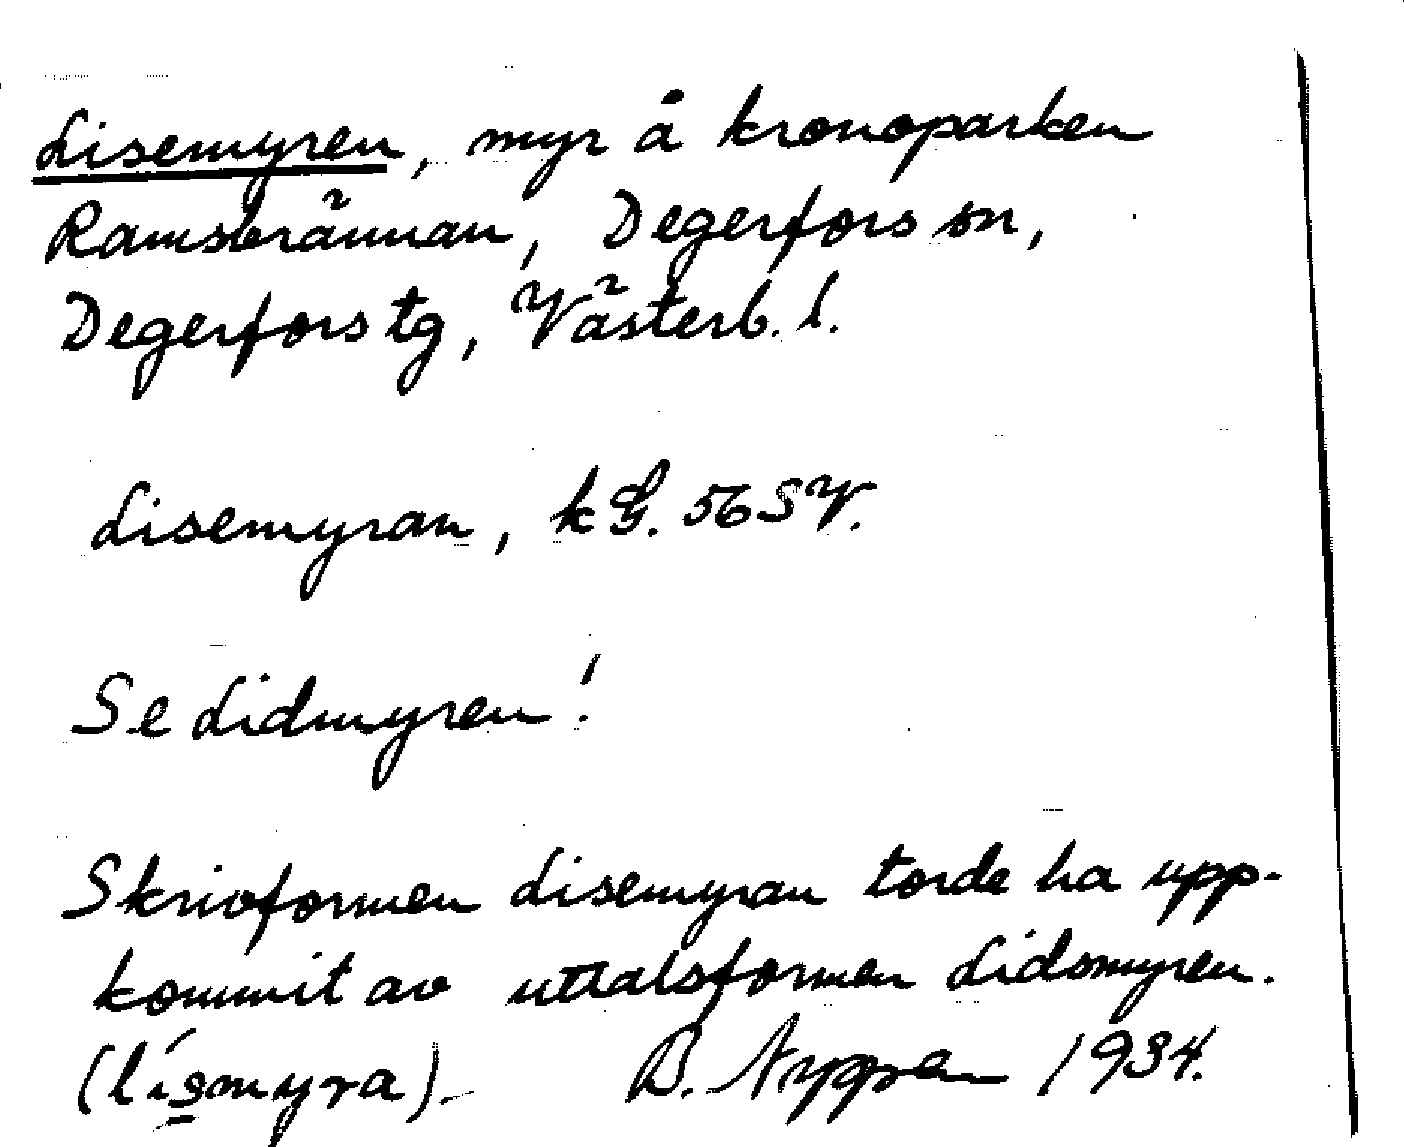 Lisemyren, myr å kronoparken
Ramsbrännan, Degerfors sn,
Degerfors tg, Västerb. l.
Lisemyran, kG. 56 SV.
Se Lidmyren!
Skrivformen Lisemyran torde ha upp-
kommit av uttalsformen Lidsmyren.
(lísmyra). B. 1934.